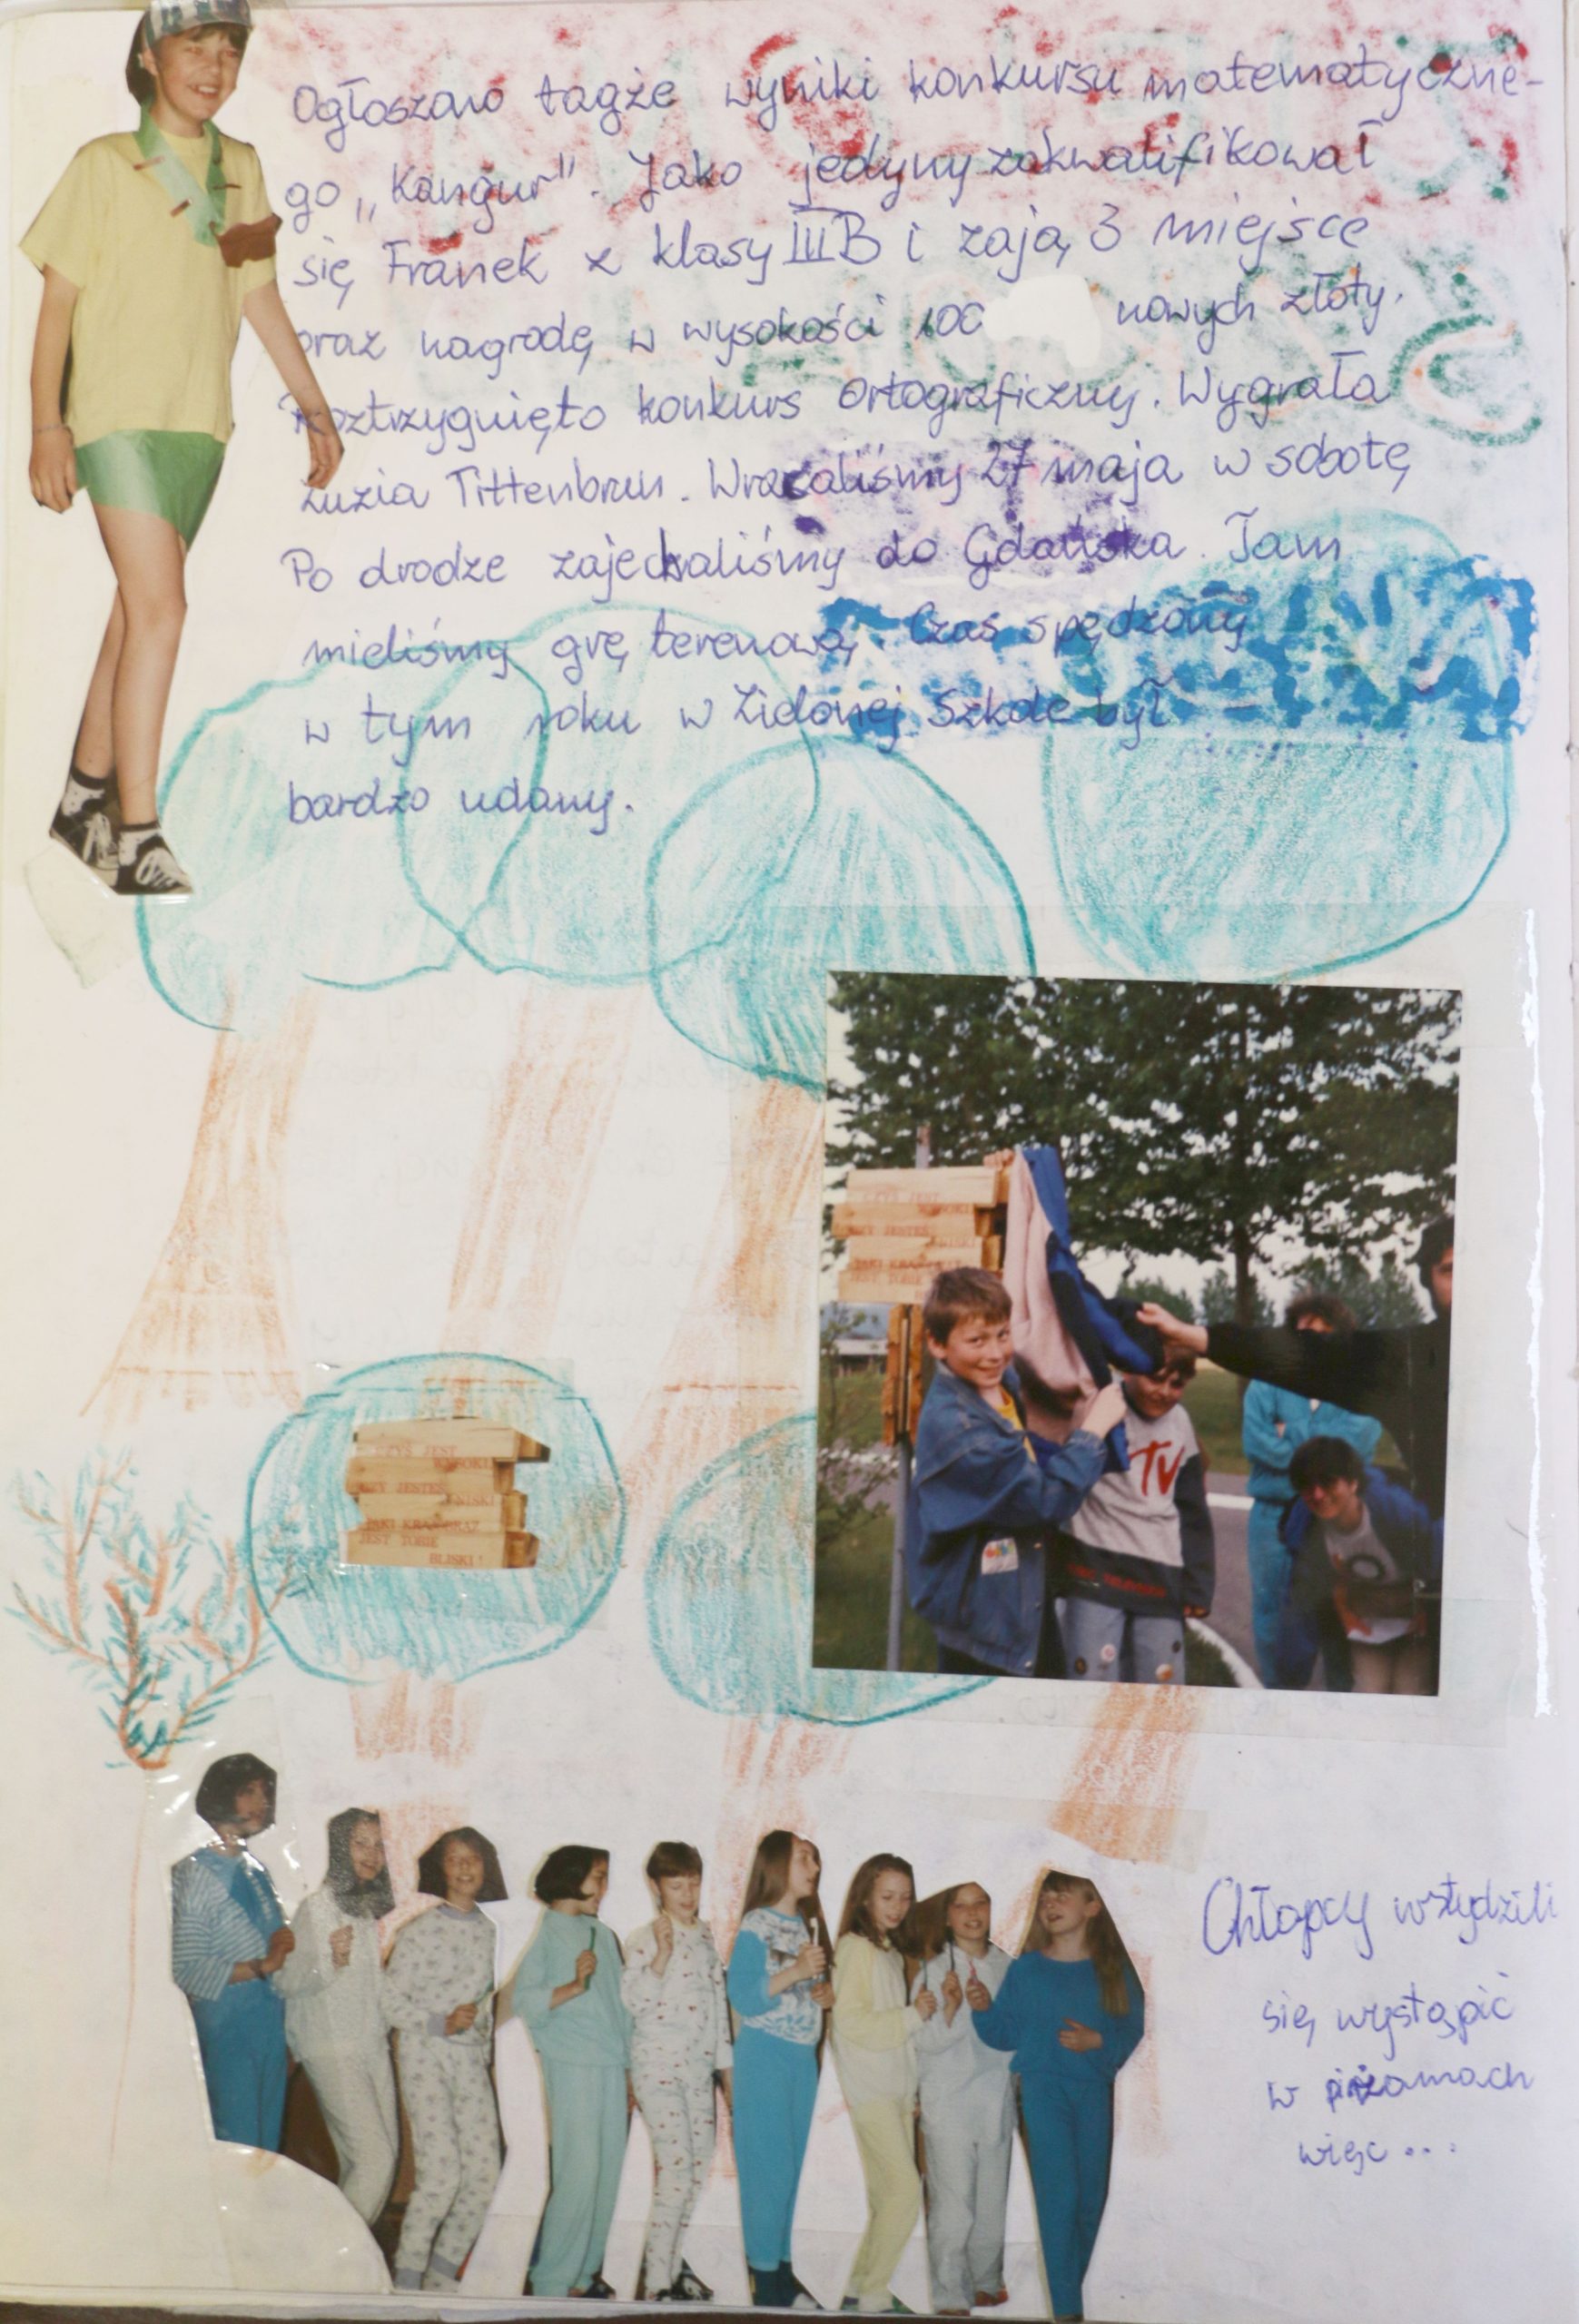 Ogłoszono tagże wyniki konkursu matematyczne-
go „Kangur". Jako jedyny zakwalifikował
się Franek z klasy III B i zają 3 miejsce
oraz nagrodę w wysokości 100 nowych złoty.
Roztrzygnięto konkurs Ortograficzny. Wygrała
Zuzia Tittenbrun. Wracaliśmy 27 maja w sobotę
Po drodze zajechaliśmy do Gdańska. Tam
mieliśmy grę terenową. Czas spędzony
w tym roku w Zielonej Szkole był
bardzo udany.
CZYŚ JEST
WYSOKI
CZY JESTEŚ
NISKI
JAKI KRAJOBRAZ
JEST TOBIE
BLISKI!
TV
Chłopcy wstydzili
się wystąpić
w piżamach
więc ...